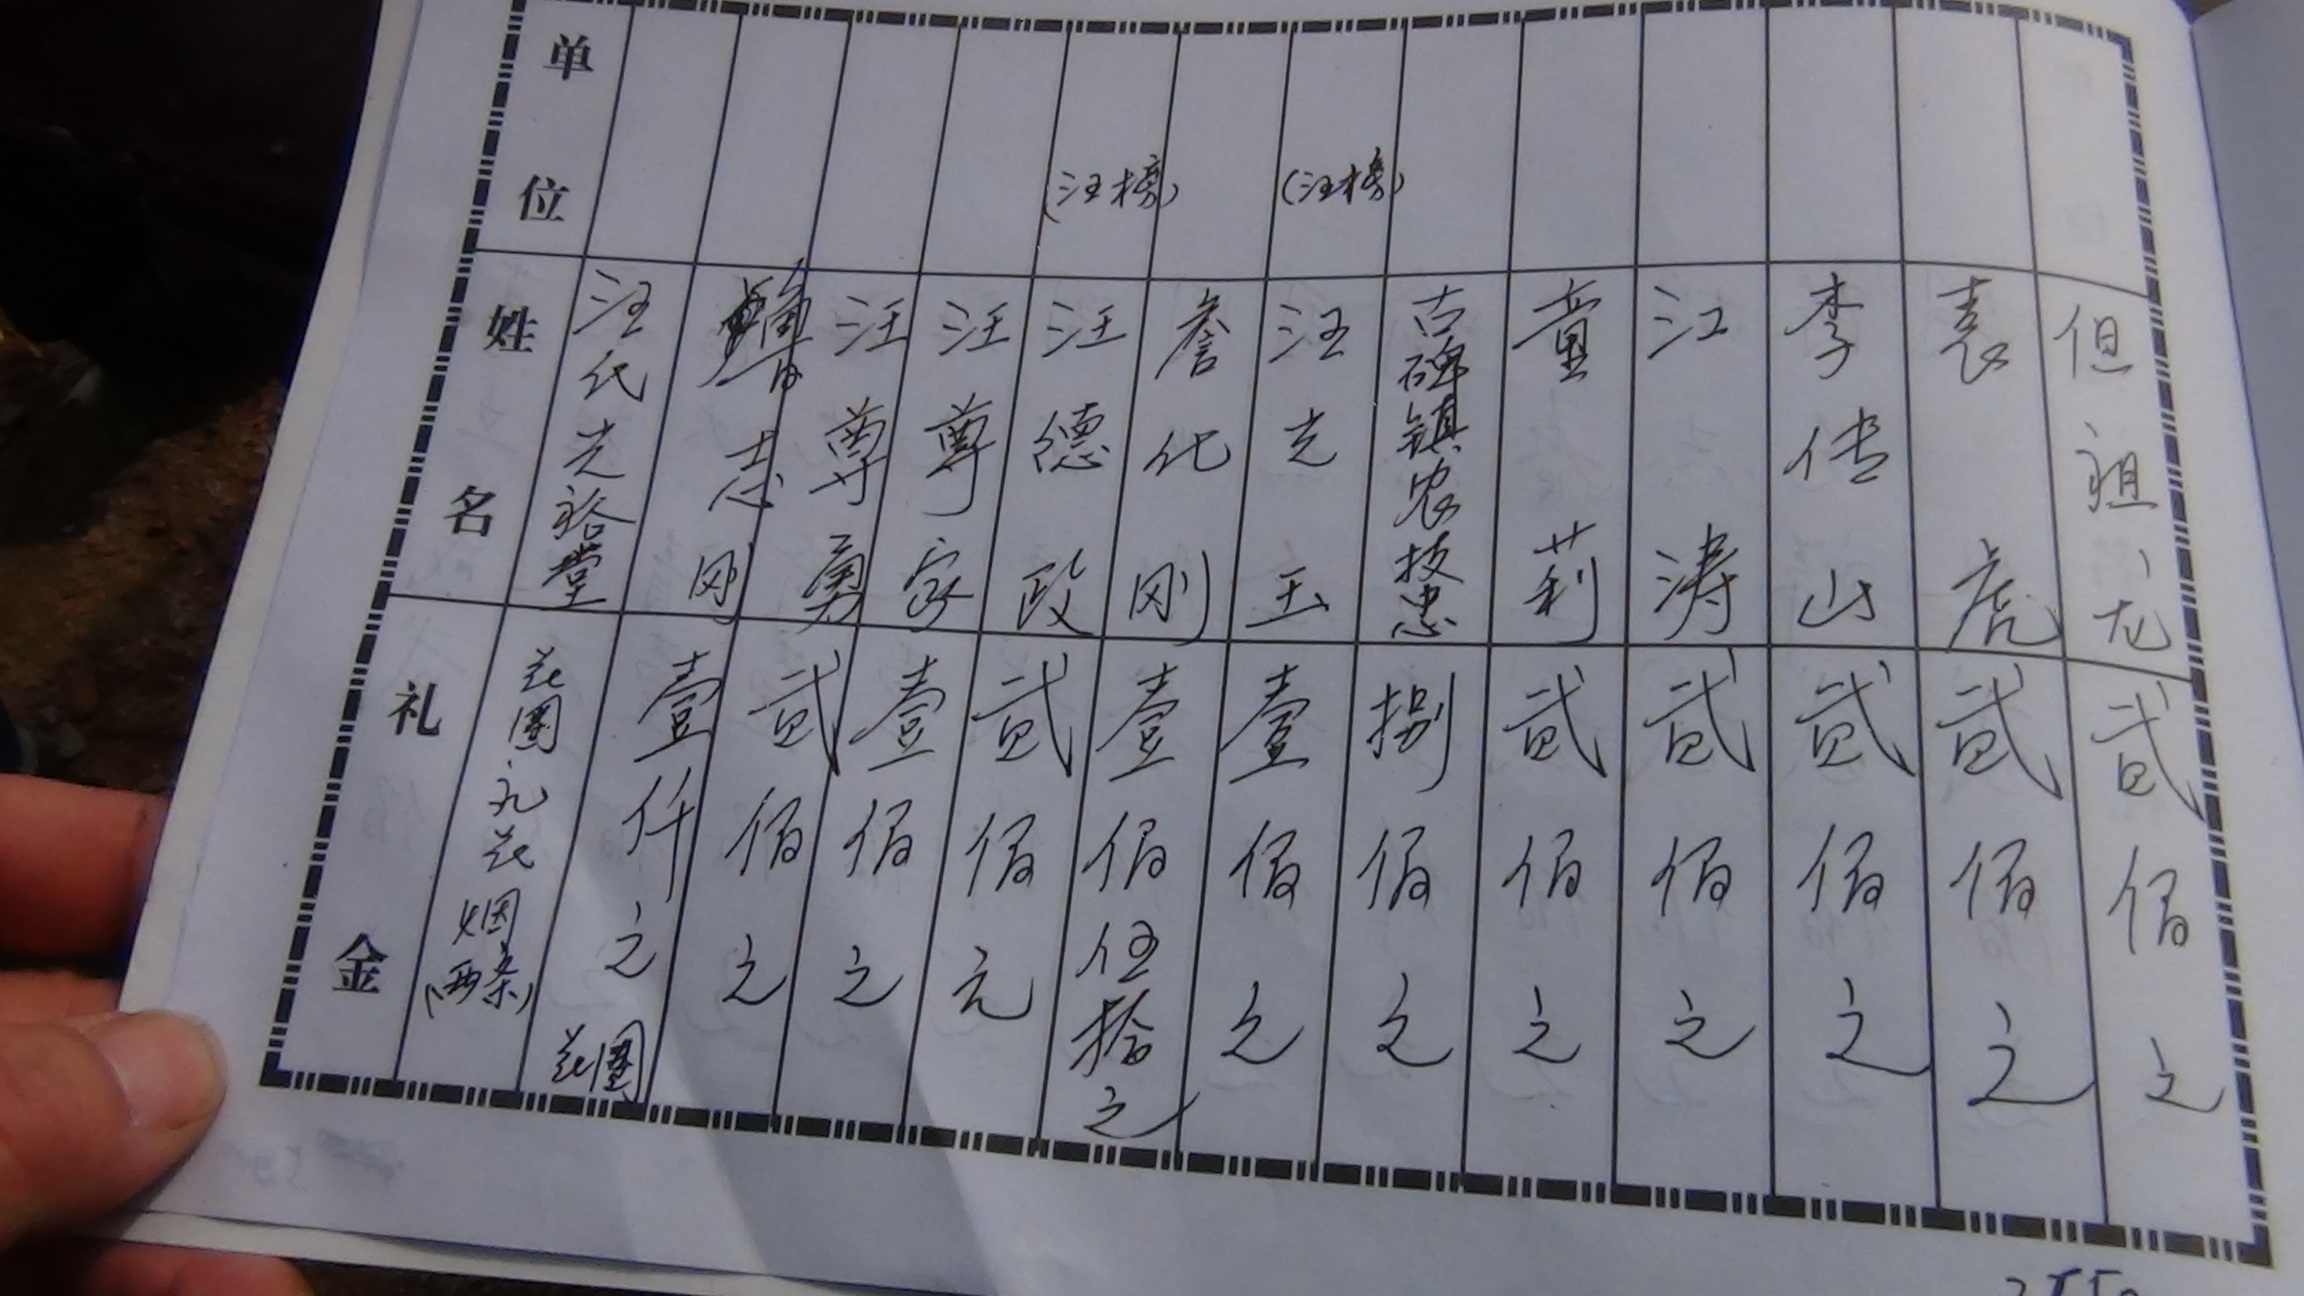 单位
姓名
礼金
汪氏光裕堂
花圈礼花烟(两条)
志刚
壹仟元
花圈
汪尊勇
贰佰元
汪尊家
壹佰元
(汪榜)
汪德政
贰佰元
詹化刚
壹佰伍拾元
(汪榜)
汪志玉
壹佰元
古碑镇农技忠
捌佰元
童莉
贰佰元
江涛
贰佰元
李传山
贰佰元
袁虎
贰佰元
但祖龙
贰佰元